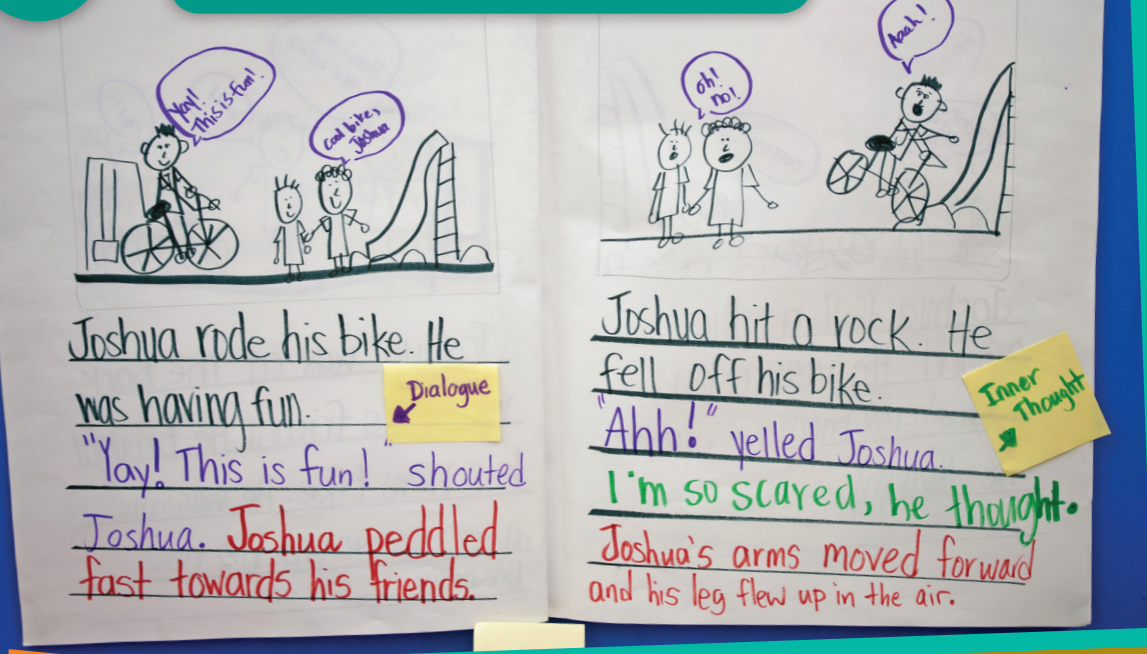 Yay!
This is fun!
Cool bike,
Joshua
Joshua rode his bike. He
was having fun.
Dialogue
"Yay! This is fun!" shouted
Joshua. Joshua peddled
fast towards his friends.
oh!
no!
Aaah!
Joshua hit a rock. He
fell off his bike.
Inner
Thought
"Ahh!" yelled Joshua.
I'm so scared, he thought.
Joshua's arms moved forward
and his leg flew up in the air.